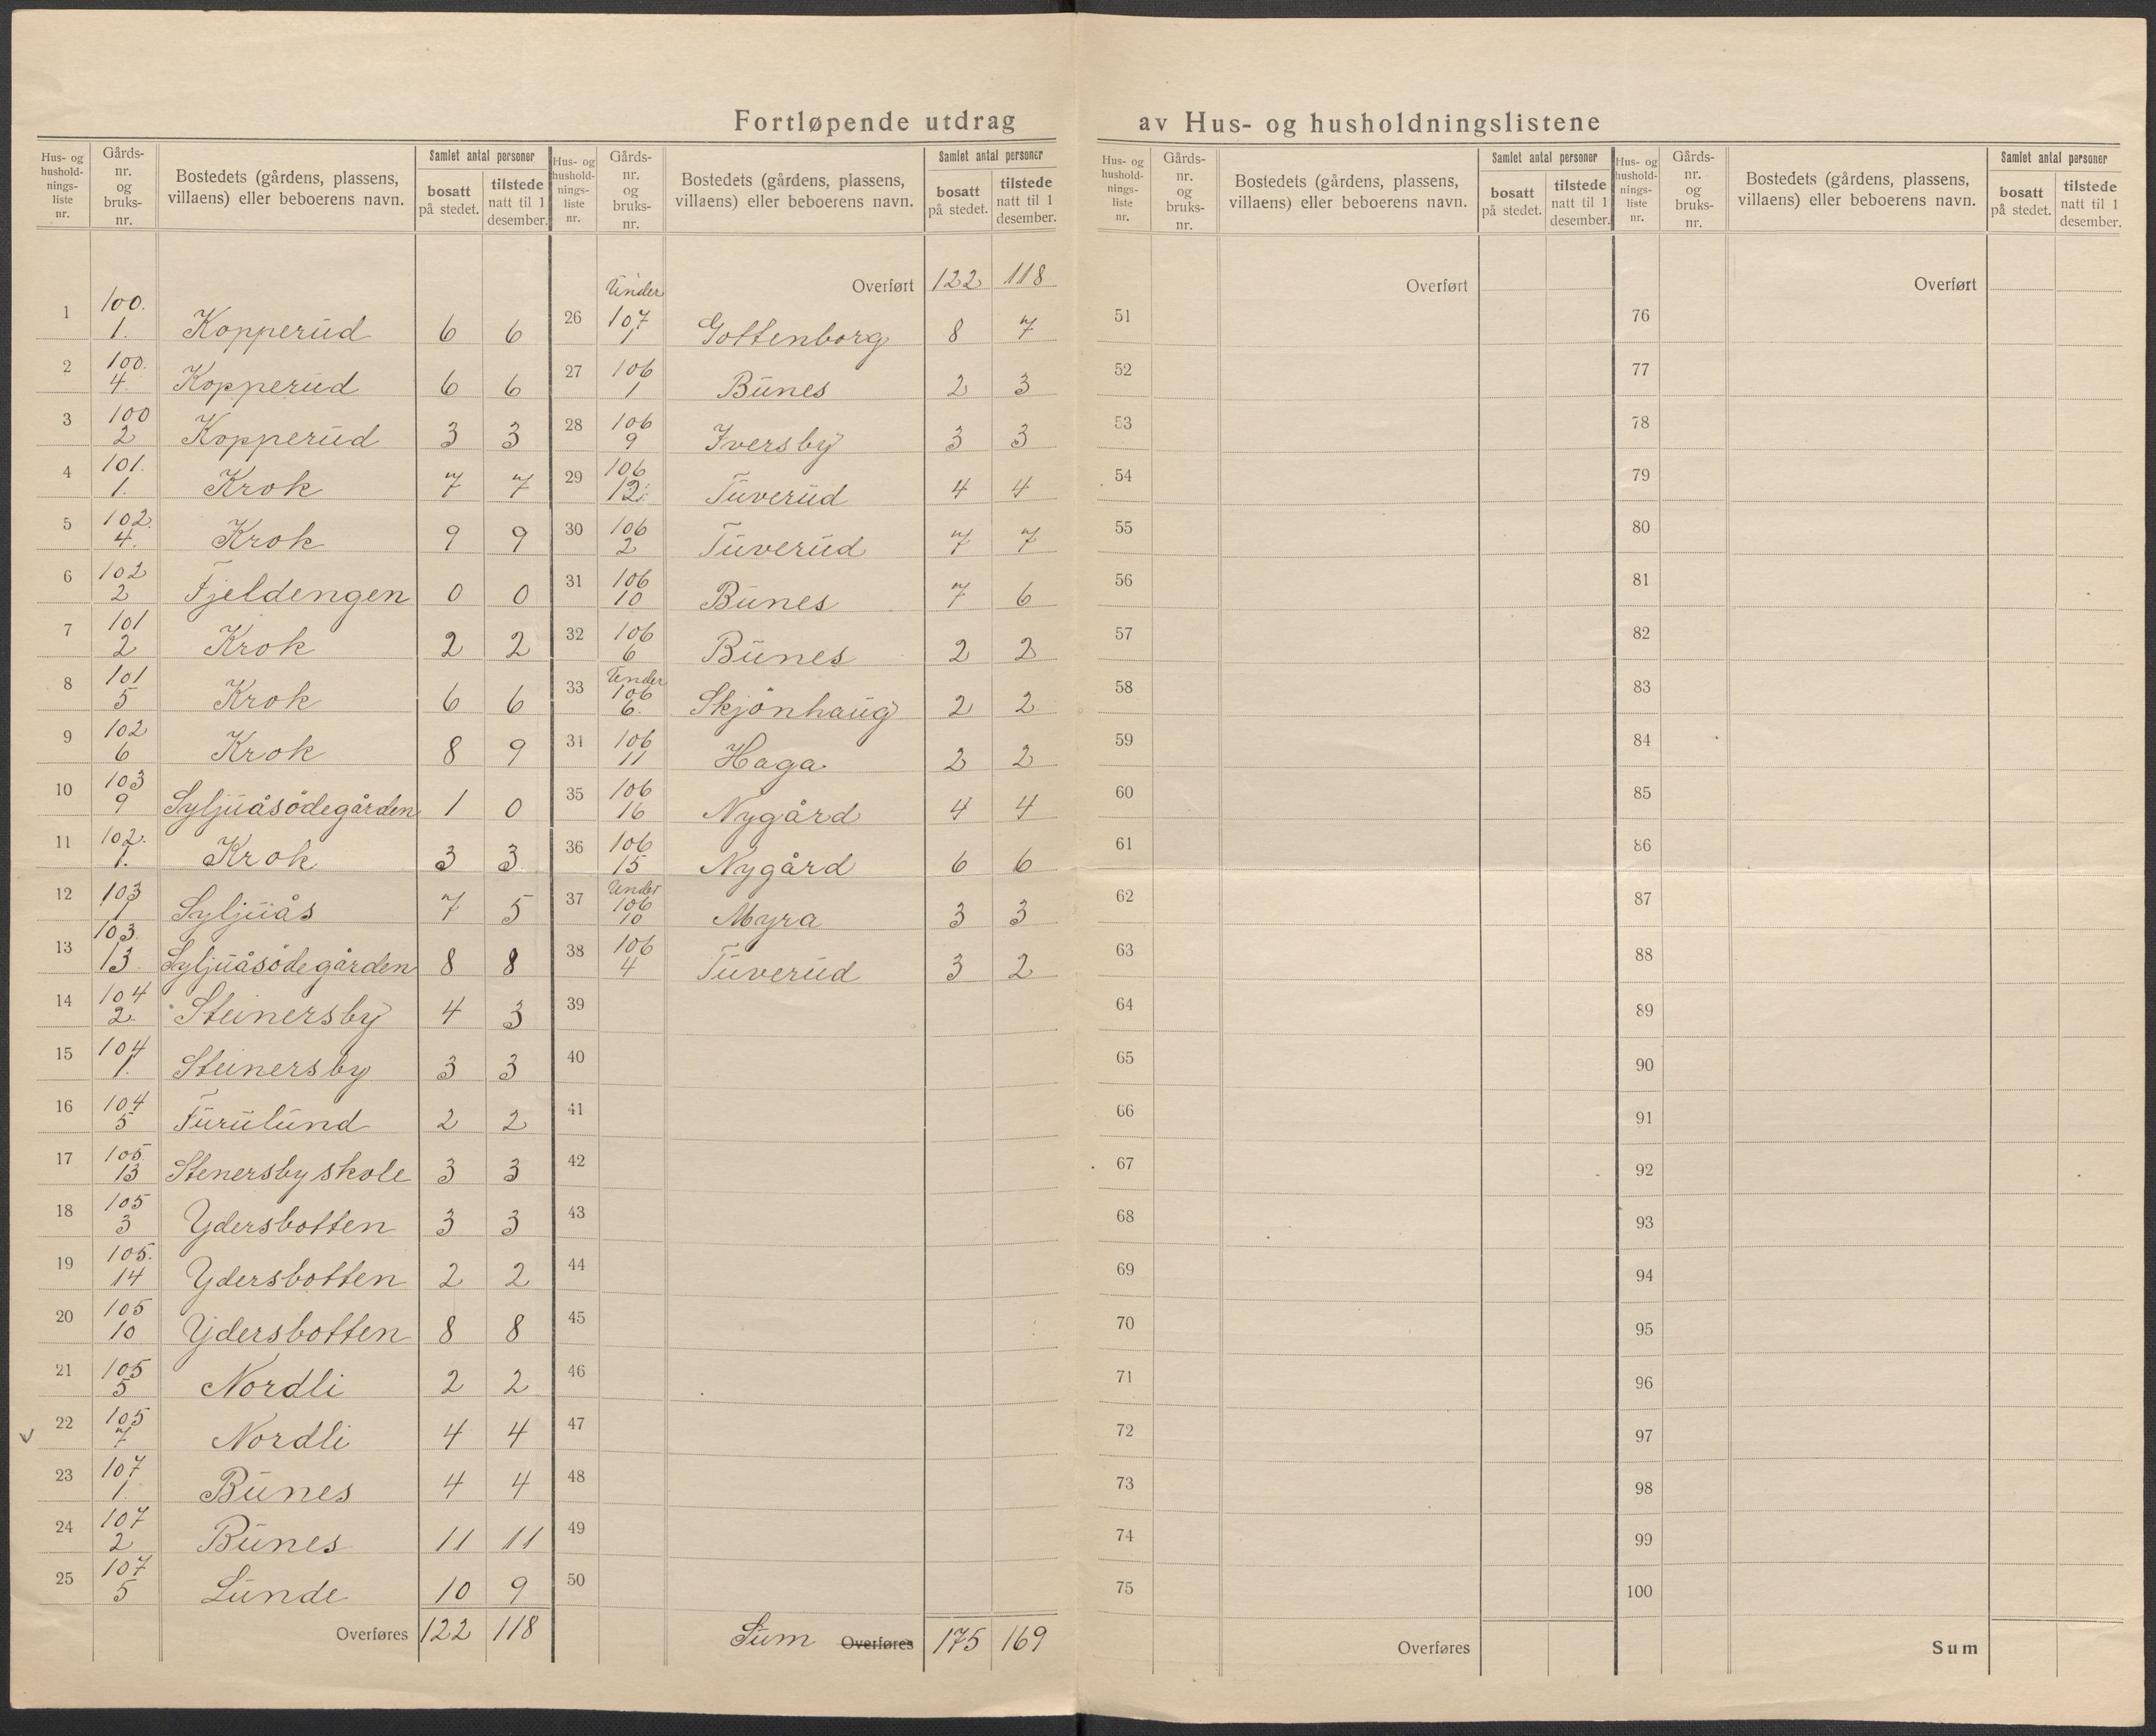 Fortløpende utdrag av Hus- og husholdningslistene
Hus- og hushold-nings-liste nr. Gårds-nr. og bruks-nr. Bostedets (gårdens, plassens, villaens) eller beboerens navn. Samlet antal personer bosatt på stedet. tilstede natt til 1 desember.
1 100. 1. Kopperud 6 6
2 100. 4. Kopperud 6 6
3 100 2 Kopperud 3 3
4 101. 1. Krok 7 7
5 102. 4. Krok 9 9
6 102 2 Fjeldengen 0 0
7 101 2 Krok 2 2
8 101 5 Krok 6 6
9 102 6 Krok 8 9
10 103 9 Syljuåsödegården 1 0
11 102. 1. Krok 3 3
12 103 1 Syljuås 7 5
13 103. 13 Syljuåsödegården 8 8
14 104 2. Steinersby 4 3
15 104 1. Steinersby 3 3
16 104 5 Furulund 2 2
17 105. 13 Stenersby skole 3 3
18 105 3 Ydersbotten 3 3
19 105. 14 Ydersbotten 2 2
20 105 10 Ydersbotten 8 8
21 105 5 Nordli 2 2
v 22 105 7 Nordli 4 4
23 107 1. Bunes 4 4
24 107 2 Bunes 11 11
25 107 5 Lunde 10 9
Overføres 122 118
Hus- og hushold-nings-liste nr. Gårds-nr. og bruks-nr. Bostedets (gårdens, plassens, villaens) eller beboerens navn. Samlet antal personer bosatt på stedet. tilstede natt til 1 desember.
Overført 122 118
26 Under 107 1 Gottenborg 8 7
27 106 1 Bunes 2 3
28 106 9 Iversby 3 3
29 106 12. Tuverud 4 4
30 106 2 Tuverud 7 7
31 106 10 Bunes 7 6
32 106 6 Bunes 2 2
33 Under 106 6. Skjönhaug 2 2
34 106 11 Haga 2 2
35 106 16 Nygård 4 4
36 106 15 Nygård 6 6
37 Under 106 10 Myra 3 3
38 106 4 Tuverud 3 2
39
40
41
42
43
44
45
46
47
48
49
50
Sum Overføres 175 169
Hus- og hushold-nings-liste nr. Gårds-nr. og bruks-nr. Bostedets (gårdens, plassens, villaens) eller beboerens navn. Samlet antal personer bosatt på stedet. tilstede natt til 1 desember.
Overført
51
52
53
54
55
56
57
58
59
60
61
62
63
64
65
66
67
68
69
70
71
72
73
74
75
Overføres
Hus- og hushold-nings-liste nr. Gårds-nr. og bruks-nr. Bostedets (gårdens, plassens, villaens) eller beboerens navn. Samlet antal personer bosatt på stedet. tilstede natt til 1 desember.
Overført
76
77
78
79
80
81
82
83
84
85
86
87
88
89
90
91
92
93
94
95
96
97
98
99
100
Sum